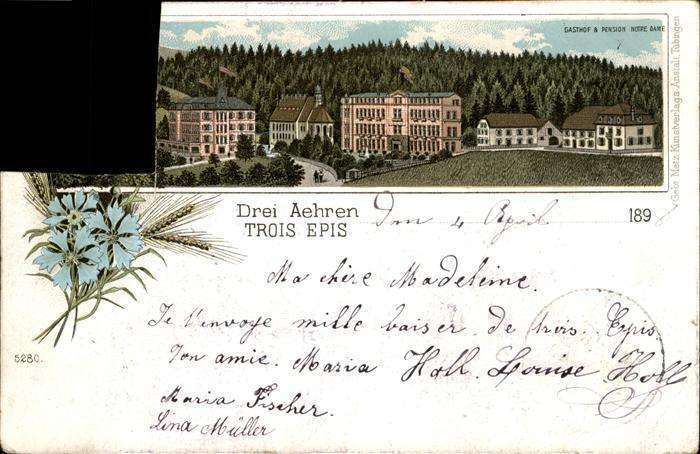 GASTHOF & PENSION NOTRE DAME
Gebr Metz Kunstverlags Anstalt, Tübingen
Drei Aehren
TROIS EPIS
Den 4 April 189
Ma chère Madeleine.
Je t'envoye mille baiser de trois Epis
Ton amie. Maria Holl. Louise Holl
Maria Fischer.
Lina Müller
5280.